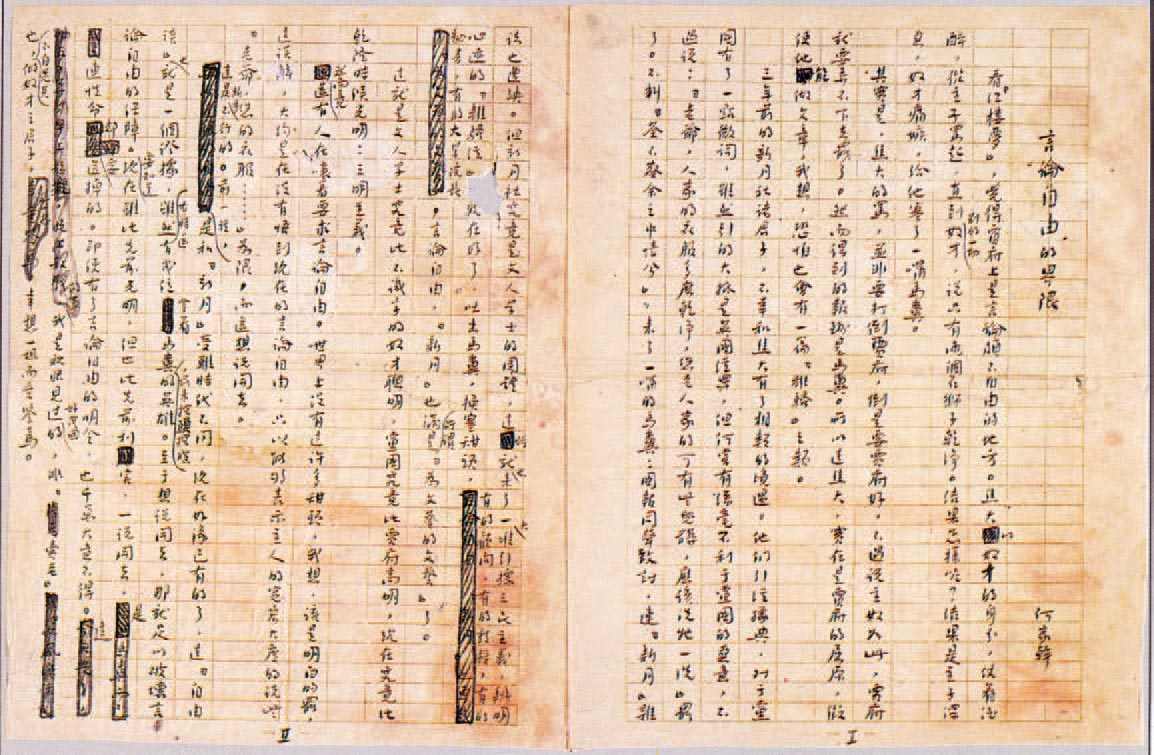 言論自由的界限
何家幹
看《紅樓夢》,覺得賈府上是言論頗不自由的地方。焦大以奴才的身分,仗着酒
醉,從主子罵起,直到別的一切奴才,說只有兩個石獅子乾淨。結果怎樣呢?結果是主子深
惡,奴才痛嫉,給他塞了一嘴馬糞。
其實是,焦大的罵,並非要打倒賈府,倒是要賈府好,不過說主奴如此,賈府
就要弄不下去罷了。然而得到的報酬是馬糞。所以這焦大,實在是賈府的屈原,假
使他能做文章,我想,恐怕也會有一篇《離騷》之類。
三年前的新月社諸君子,不幸和焦大有了相類的境遇。他們引經據典,對于黨
國有了一點微詞,雖然引的大抵是英國經典,但何嘗有絲毫不利于黨國的惡意,不
過說:“老爺,人家的衣服多麼乾淨,您老人家的可有些兒髒,應該洗他一洗”罷
了。不料“荃不察余之中情兮”,來了一嘴的馬糞:國報同聲致討,連《新月》雜
誌也遭殃。但新月社究竟是文人學士的團體,這時就也來了一大堆引據三民主義,辨明
心迹的“離騷經”。現在好了,吐出馬糞,換塞甜頭,有的顧問,有的教授,有的
秘書,有的大學院長,言論自由,《新月》也滿是所謂“為文藝的文藝”了。
這就是文人學士究竟比不識字的奴才聰明,黨國究竟比賈府高明,現在究竟比
乾隆時候光明:三明主義。
然而竟還有人在嚷着要求言論自由。世界上沒有這許多甜頭,我想,該是明白的罷,
這誤解,大約是在沒有悟到現在的言論自由,只以能夠表示主人的寬宏大度的說些
“老爺,您的衣服……”為限,而還想說開去。
這是斷乎不行的。前一種,是和《新月》受難時代不同,現在好像已有的了,這《自由
談》也就是一個證據,雖然有時還有幾位拿着馬糞,前來探頭探腦的英雄。至于想說開去,那就足以破壞言
論自由的保障。要知道現在雖比先前光明,但也比先前利害,一說開去,是
連性命都要送掉的。即使有了言論自由的明令,也千萬大意不得。這
我是親眼見過好幾回的,非“賣老”
也,不自覺其做奴才之君子,幸想一想而垂鑒焉。
I
II